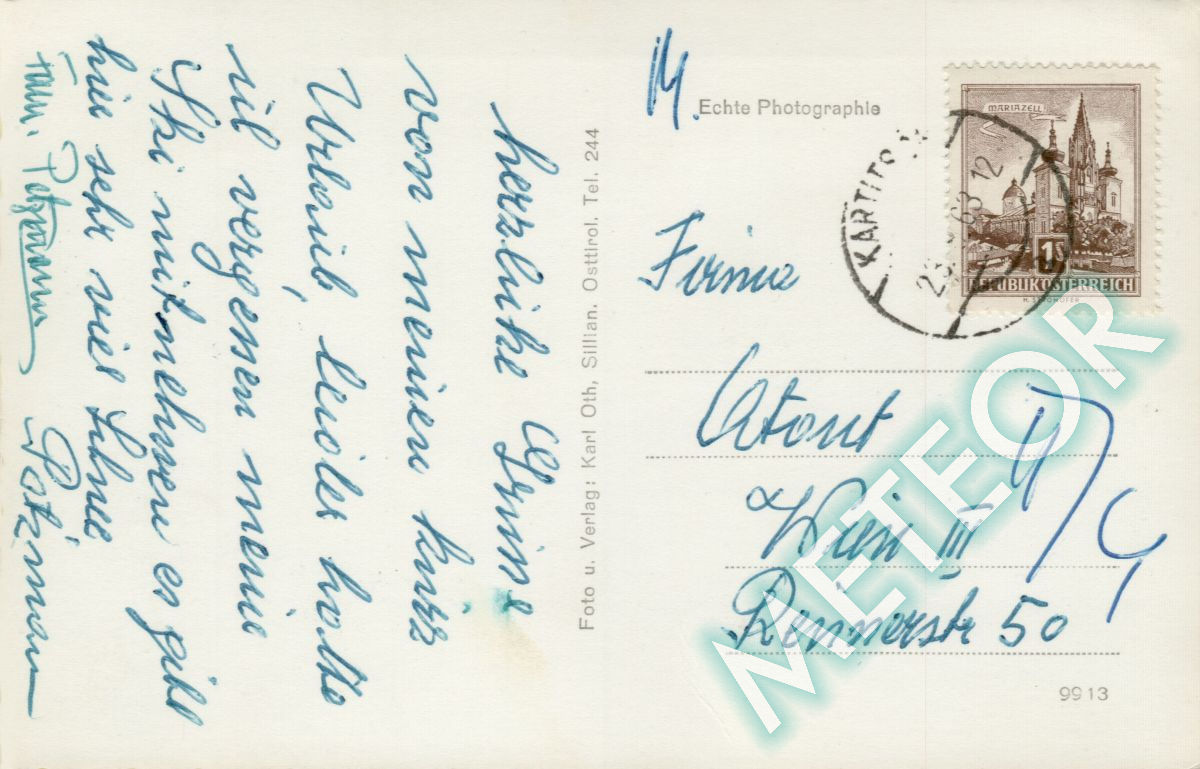 herzlike Grüse
von meinen kurz
Urlaub, leider hatte
ich vergessen meine
Ski mitnehmen es gibt
hier sehr viel Schnee
Fam. Patzmann
Patzmann
Foto u. Verlag: Karl Oth, Sillian. Osttirol. Tel. 244
Echte Photographie
MARIAZELL
1S
REPUBLIK ÖSTERREICH
KARTITS
63 12
Firma
Wien III
Rennerstr 50
9913
METEOR